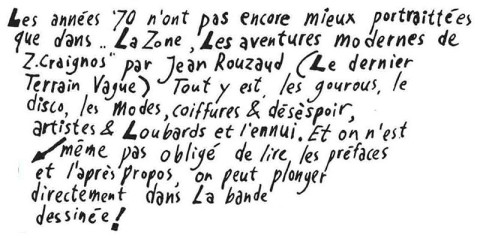 Les années '70 n'ont pas encore mieux portraittées
que dans.. La Zone, Les aventures modernes de
Z.Craignos" par Jean Rouzaud (Le dernier
Terrain Vague) Tout y est, les gourous, le
disco, les modes, coiffures & désèspoir,
artistes & Loubards et l'ennui. Et on n'est
même pas obligé de lire les préfaces
et l'après propos, on peut plonger
directement dans La bande
dessinée!